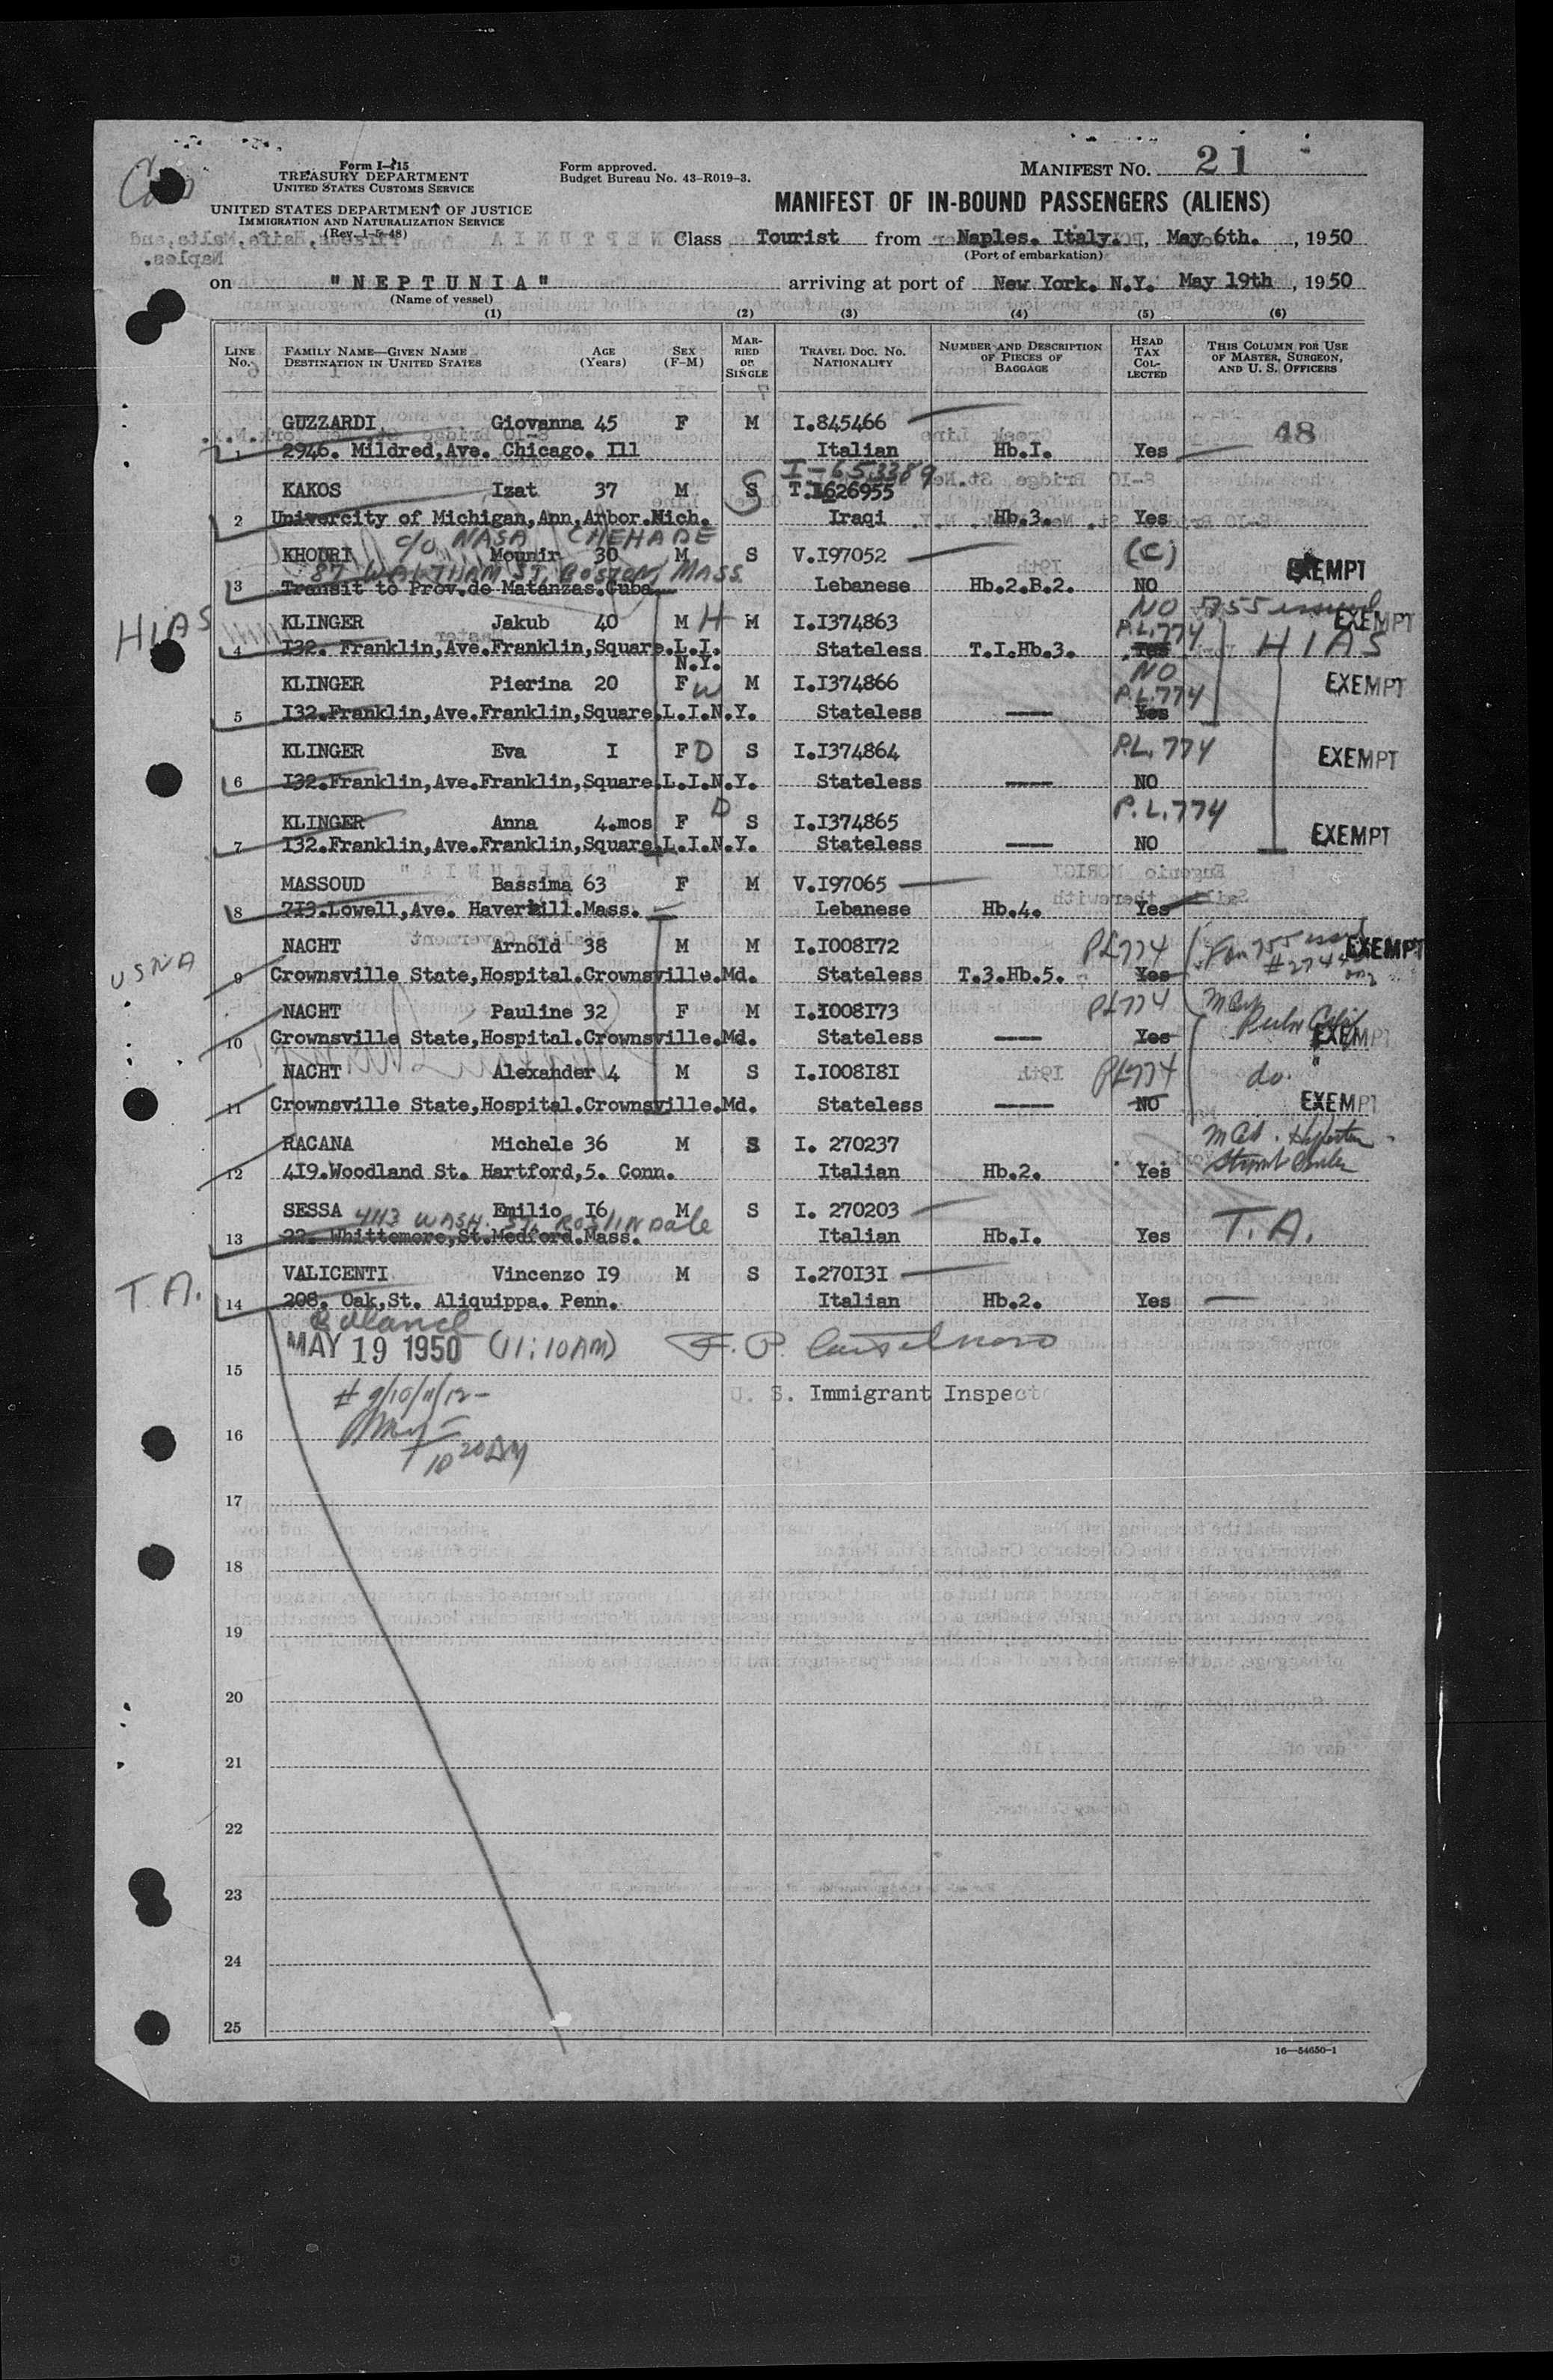 Form I-415
TREASURY DEPARTMENT
UNITED STATES CUSTOMS SERVICE
UNITED STATES DEPARTMENT OF JUSTICE
IMMIGRATION AND NATURALIZATION SERVICE
(Rev. 1-5-48)
Form approved.
Budget Bureau No. 43-R019-3.
MANIFEST NO. 21
MANIFEST OF IN-BOUND PASSENGERS (ALIENS)
Class Tourist from Naples. Italy., May 6th., 1950
(Port of embarkation)
on "NEPTUNIA" arriving at port of New York. N.Y. May 19th, 1950
(Name of vessel)
(1) (2) (3) (4) (5) (6)
LINE NO. FAMILY NAME—GIVEN NAME DESTINATION IN UNITED STATES AGE (Years) SEX (F-M) MARRIED OR SINGLE TRAVEL DOC. NO. NATIONALITY NUMBER AND DESCRIPTION OF PIECES OF BAGGAGE HEAD TAX COLLECTED THIS COLUMN FOR USE OF MASTER, SURGEON, AND U. S. OFFICERS
GUZZARDI Giovanna 45 F M I.845466 48
1 2946. Mildred,Ave. Chicago. Ill Italian Hb.I. Yes
I-653389
KAKOS Izat 37 M S T.1626955
2 Univercity of Michigan,Ann,Arbor.Mich. Iraqi Hb.3. Yes
c/o NASA CHEHADE
KHOURI Mounir 30 M S V.I97052 (C)
87 WALTHAM ST, BOSTON, MASS EXEMPT
3 Transit to Prov.de Matanzas.Cuba Lebanese Hb.2.B.2. NO
NO 755 issued
HIAS KLINGER Jakub 40 M H M I.I374863 P.L.774 EXEMPT
4 I32. Franklin,Ave.Franklin,Square.L.I. Stateless T.I.Hb.3. Yes HIAS
N.Y. NO
KLINGER Pierina 20 F W M I.I374866 P.L.774 EXEMPT
5 I32.Franklin,Ave.Franklin,Square.L.I.N.Y. Stateless Yes
KLINGER Eva I F D S I.I374864 P.L.774 EXEMPT
6 I32.Franklin,Ave.Franklin,Square.L.I.N.Y. Stateless NO
KLINGER Anna 4.mos F D S I.I374865 P.L.774 EXEMPT
7 I32.Franklin,Ave.Franklin,Square.L.I.N.Y. Stateless NO
MASSOUD Bassima 63 F M V.I97065
8 7I3.Lowell,Ave. Haverhill.Mass. Lebanese Hb.4. Yes
NACHT Arnold 38 M M I.I008I72 PL774 EXEMPT
USNA
9 Crownsville State,Hospital.Crownsville.Md. Stateless T.3.Hb.5. Yes
NACHT Pauline 32 F M I.I008I73 PL774
10 Crownsville State,Hospital.Crownsville.Md. Stateless Yes EXEMPT
NACHT Alexander 4 M S I.I008I8I PL774 do.
11 Crownsville State,Hospital.Crownsville.Md. Stateless NO EXEMPT
RACANA Michele 36 M S I. 270237
12 4I9.Woodland St. Hartford,5. Conn. Italian Hb.2. Yes
SESSA Emilio I6 M S I. 270203
4113 WASH. ST. ROSlINDale T.A.
13 22. Whittemore,St.Medford.Mass. Italian Hb.I. Yes
VALICENTI Vincenzo I9 M S I.270I3I
T.A.
14 208. Oak,St. Aliquippa. Penn. Italian Hb.2. Yes
Balance
MAY 19 1950 (11:10AM)
15
U. S. Immigrant Inspect
# 9/10/11/12-
16
10 20AM
17
18
19
20
21
22
23
24
25
16—54650-1